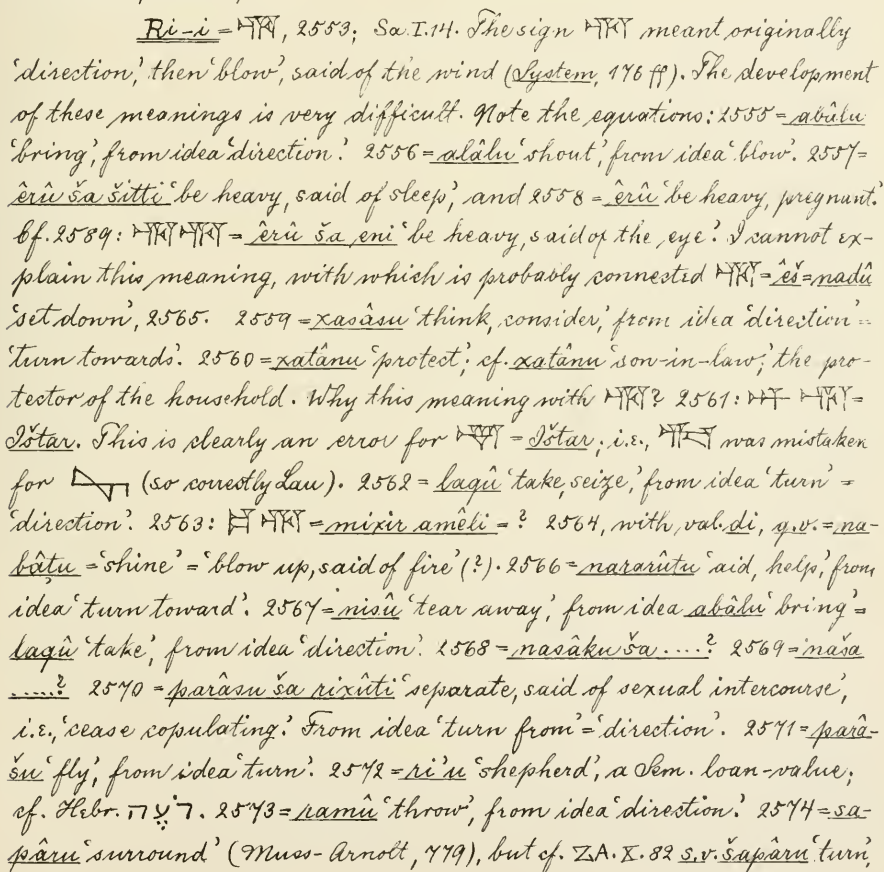 Ri-i = 𒊑, 2553; Sa.I.14. The sign 𒊑 meant originally
‘direction,’ then ‘blow’, said of the wind (System, 176 ff). The development
of these meanings is very difficult. Note the equations: 2555 = abâlu
‘bring’, from idea ‘direction.’ 2556 = alâlu ‘shout’, from idea ‘blow’. 2557 =
êrû ša šitti ‘be heavy, said of sleep’, and 2558 = êrû ‘be heavy, pregnant.’
Cf. 2589: 𒊑𒊑 = êrû ša eni ‘be heavy, said of the eye’. I cannot ex-
plain this meaning, with which is probably connected 𒊑 = êš = nadû
‘set down’, 2565. 2559 = xasâsu ‘think, consider,’ from idea ‘direction’ =
‘turn towards’. 2560 = xatânu ‘protect’; cf. xatânu ‘son-in-law,’ the pro-
tector of the household. Why this meaning with 𒊑? 2561: 𒀭 𒊑 =
Ištar. This is clearly an error for = Ištar; i.e., was mistaken
for (so correctly Lau). 2562 = laqû ‘take, seize,’ from idea ‘turn’ =
‘direction’. 2563: 𒊑 = mixir amêli = ? 2564, with val. di, q.v. = na-
bâṭu = ‘shine’ = ‘blow up, said of fire’ (?). 2566 = nararûtu ‘aid, help,’ from
idea ‘turn toward’. 2567 = nisû ‘tear away’, from idea abâlu ‘bring’ =
laqû ‘take’, from idea ‘direction’. 2568 = nasâku ša ....? 2569 = naša
.....? 2570 = parâsu ša rixûti ‘separate, said of sexual intercourse’,
i.e., ‘cease copulating.’ From idea ‘turn from’ = ‘direction’. 2571 = parâ-
šu ‘fly’, from idea ‘turn’. 2572 = ri'u ‘shepherd’, a Sem. loan-value;
cf. Hebr. רֹעֶה. 2573 = ramû ‘throw’, from idea ‘direction.’ 2574 = sa-
pâru ‘surround’ (Muss-Arnolt, 779), but cf. ZA. X. 82 s.v. šapâru ‘turn,